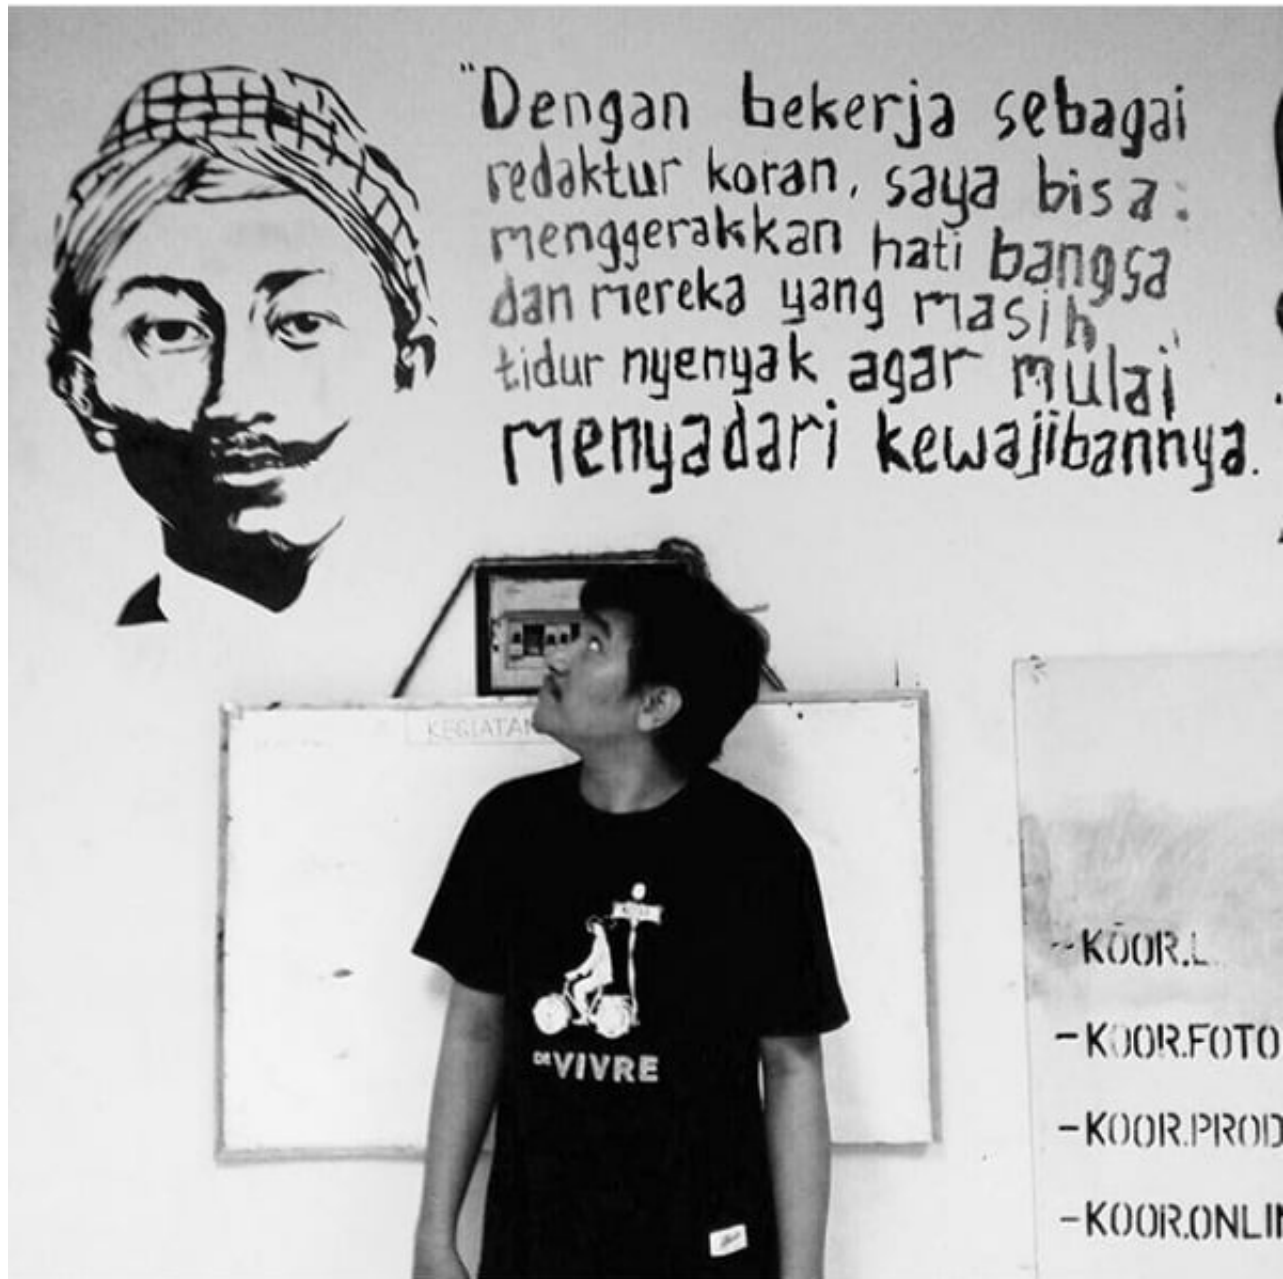 "Dengan bekerja sebagai
redaktur koran, saya bisa:
menggerakkan hati bangsa
dan mereka yang masih
tidur nyenyak agar mulai
menyadari kewajibannya.
KEGIATAN
DE VIVRE
-KOOR.L
-KOOR.FOTO
-KOOR.PROD
-KOOR.ONLIN